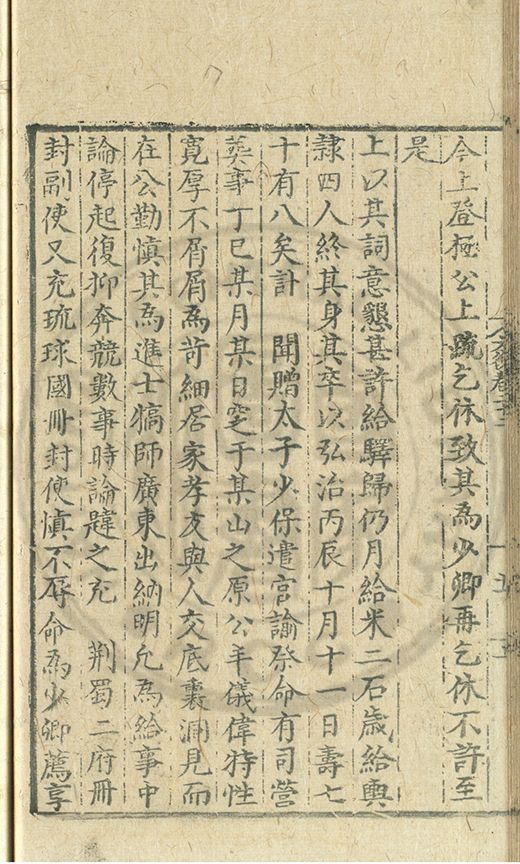 今上登極公上疏乞休致其為少卿再乞休不許至
是
上以其詞意懇甚許給驛歸仍月給米二石歲給輿
隷四人終其身其卒以弘治丙辰十月十一日壽七
十有八矣計　聞贈太子少保遣官諭祭命有司營
葬事丁巳某月某日窆于某山之原公丰儀偉特性
寬厚不屑屑為苛細居家孝友與人交底裏洞見而
在公勤慎其為進士犒師廣東出納明允為給事中
論停起復抑奔競數事時論韙之充　荆蜀二府冊
封副使又充琉球國冊封使慎不辱命為少卿薦享